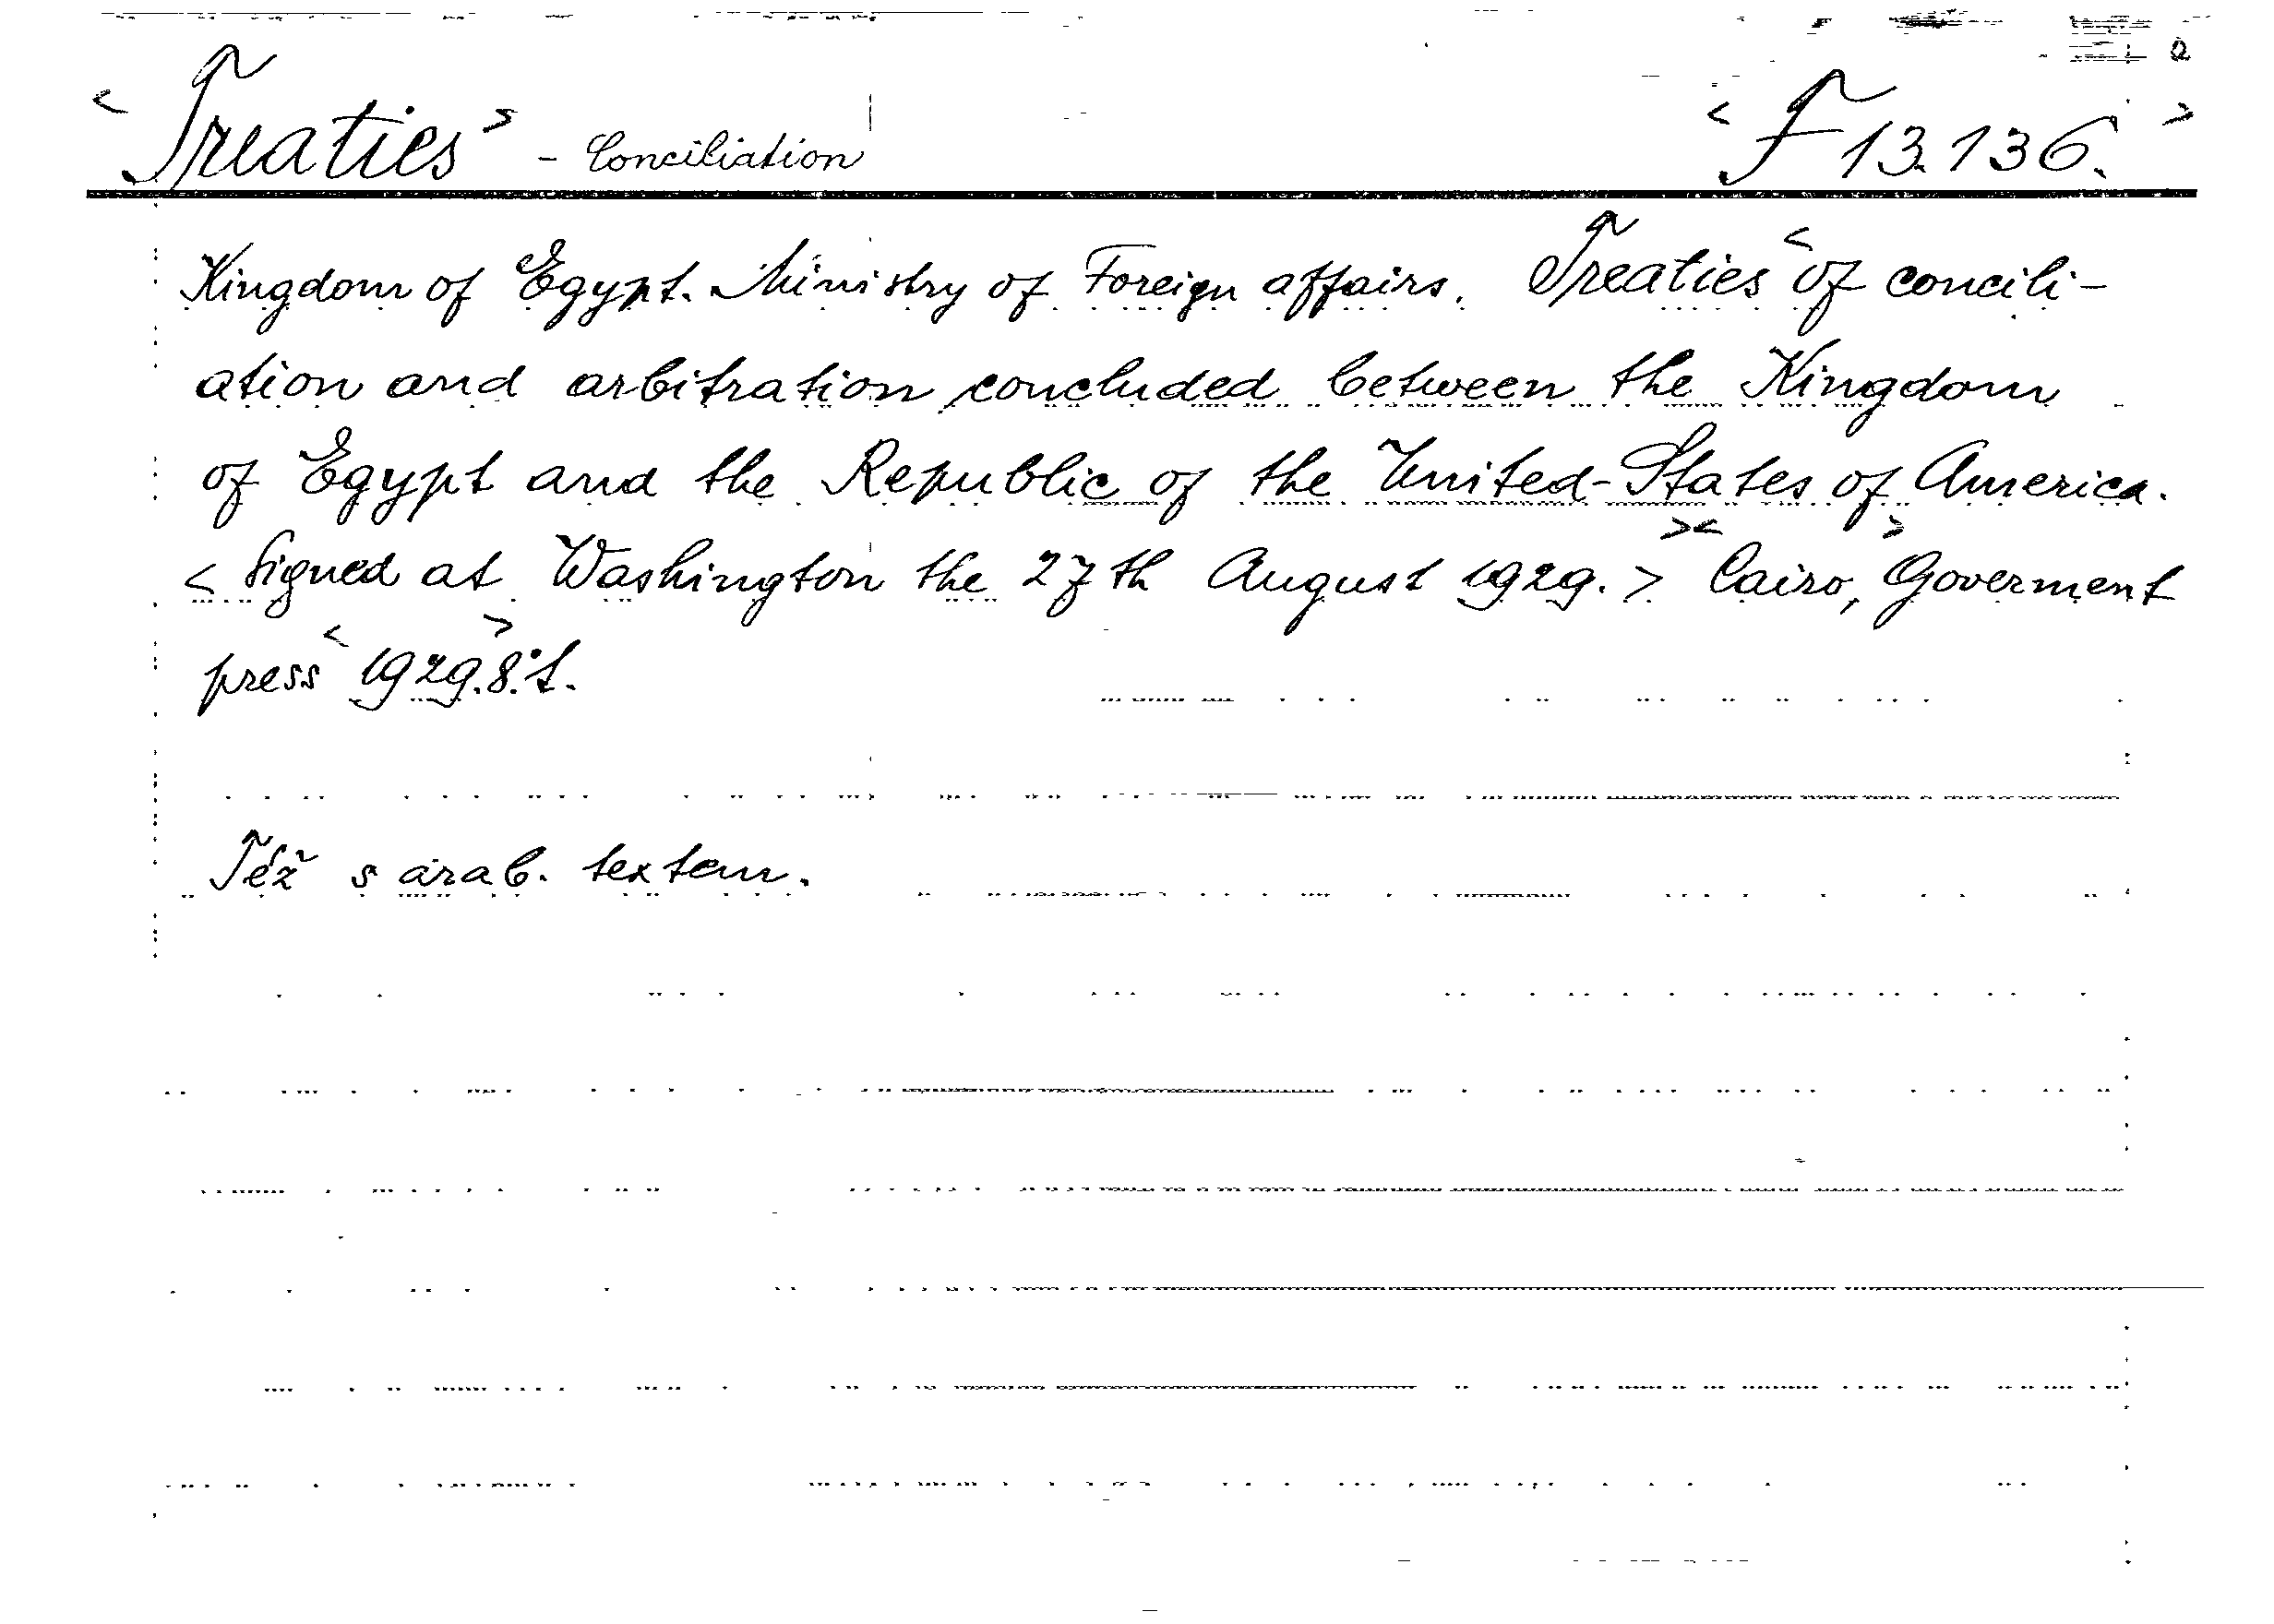 < Treaties > - Conciliation < F 13.136. >
Kingdom of Egypt. Ministry of Foreign affairs. Treaties < of concili-
ation and arbitration concluded between the Kingdom
of Egypt and the Republic of the United-States of America.
< Signed at Washington the 27th August 1929. > >< Cairo, > Goverment
press < 1929. > 8.°t.
Též s arab. textem.